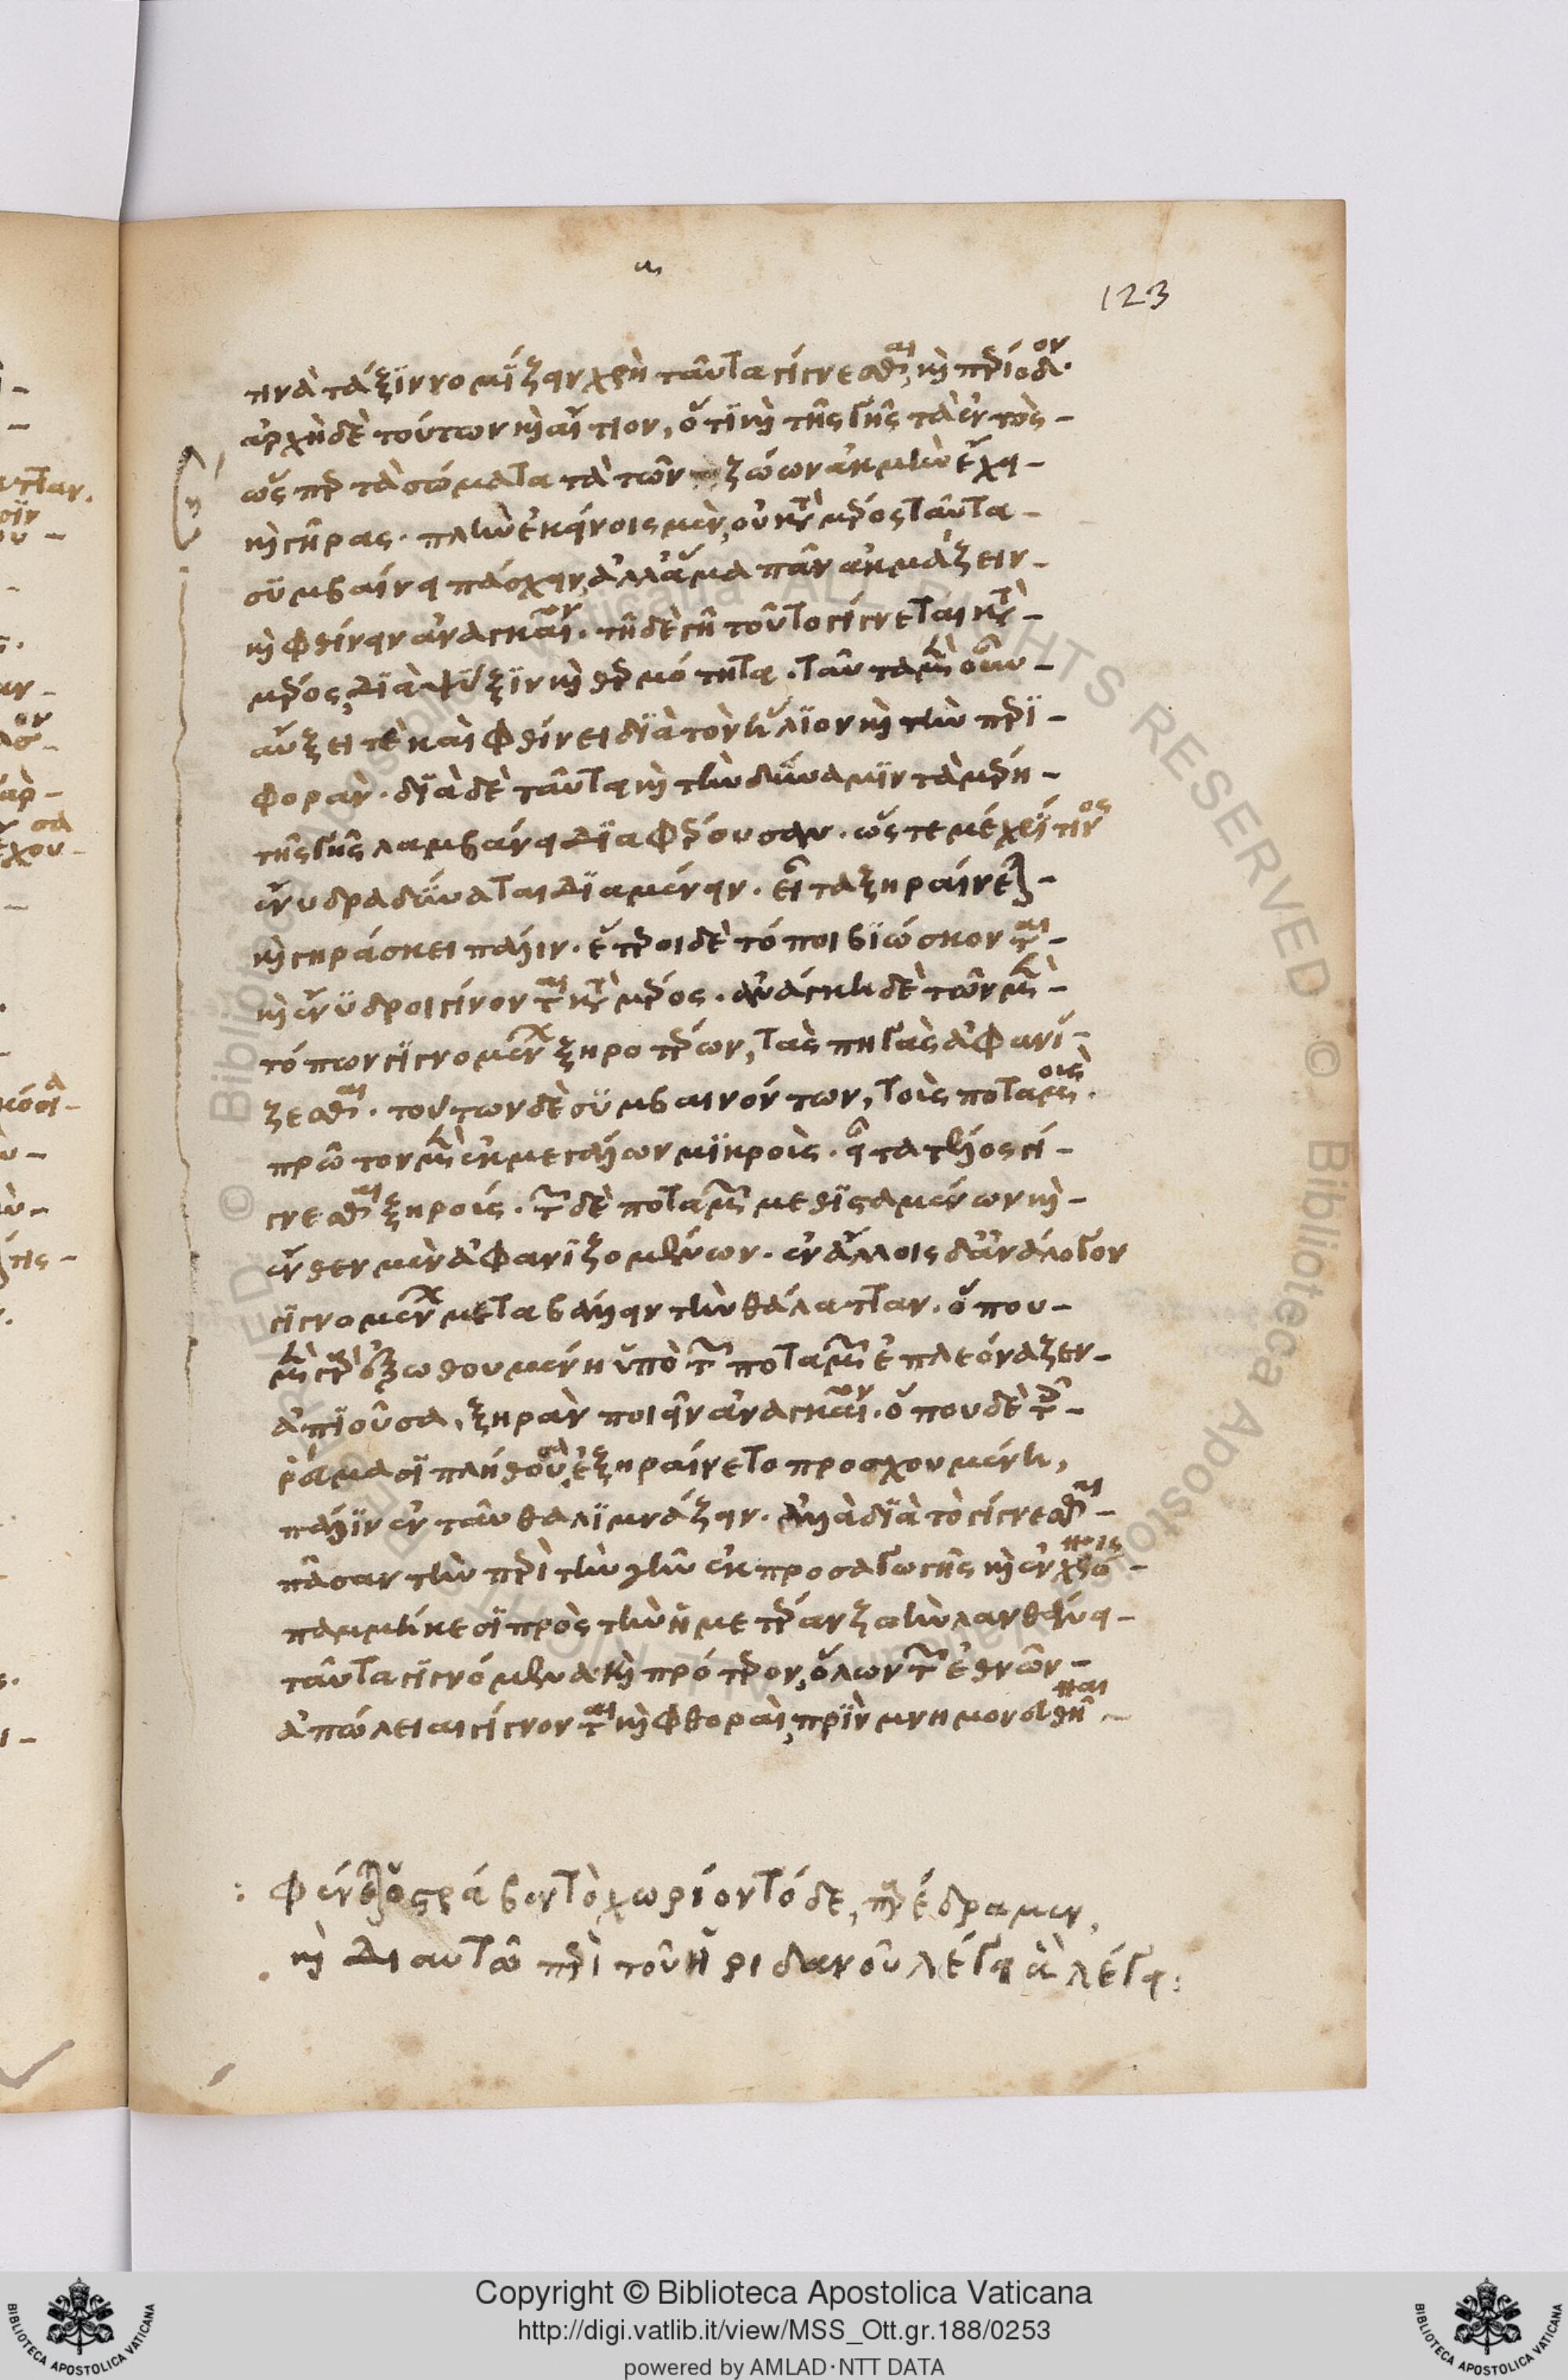 α
123
τινὰ τάξιν νομίζειν χρὴ ταῦτα γίγνεσθαι καὶ περίοδον·
ἀρχὴ δὲ τούτων καὶ αἴτιον, ὅτι καὶ τῆς γῆς τὰ ἐντὸς
ὥσπερ τὰ σώματα τὰ τῶν ζώων ἀκμὴν ἔχει
καὶ γῆρας· πλὴν ἐκείνοις μὲν, οὐ κατὰ μέρος ταῦτα
συμβαίνει πάσχειν, ἀλλ' ἅμα πᾶν ἀκμάζειν
καὶ φθίνειν ἀναγκαῖον· τῇ δὲ γῇ τοῦτο γίγνεται κατὰ
μέρος, διὰ ψύξιν καὶ θερμότητα· ταῦτα μὲν οὖν
αὔξει τὲ καὶ φθίνει διὰ τὸν ἥλιον καὶ τὴν περι
φοράν· διὰ δὲ ταῦτα καὶ τὴν δύναμιν τὰ μέρη
τῆς γῆς λαμβάνει διαφέρουσαν· ὥστε μέχρί τινος
ἔνυδρα δύναται διαμένειν· εἶτα ξηραίνεται
καὶ γηράσκει πάλιν· ἕτεροι δὲ τόποι βιώσκονται
καὶ ἔνυδροι γίνονται κατὰ μέρος· ἀνάγκη δὲ τῶν μὲν
τόπων γιγνομένων ξηροτέρων, τὰς πηγὰς ἀφανί
ζεσθαι· τούτων δὲ συμβαινόντων, τοὺς ποταμοὺς
πρῶτον μὲν ἐκ μεγάλων μικροὺς· εἶτα τέλος γί
γνεσθαι ξηρούς· τῶν δὲ ποταμῶν μεθισταμένων καὶ
ἔνθεν μὲν ἀφανιζομένων· ἐν ἄλλοις δ' ἀνάλογον
γιγνομένων μεταβάλλειν τὴν θάλατταν· ὅπου
μὲν γὰρ ἐξωθουμένη ὑπὸ τῶν ποταμῶν ἐπλεόναζεν
ἀπιοῦσα, ξηρὰν ποιεῖν ἀναγκαῖον· ὅπου δὲ τοῖς
ῥεύμασι πληθύουσα ἐξηραίνετο προσχουμένη,
πάλιν ἐνταῦθα λιμνάζειν· ἀλλὰ διὰ τὸ γίγνεσθαι
πᾶσαν τὴν περὶ τὴν γῆν ἐκ προσαγωγῆς καὶ ἐν χρόνοις
παμμήκεσι πρὸς τὴν ἡμετέραν ζωὴν λανθάνει
ταῦτα γιγνόμενα καὶ πρότερον, ὅλων τῶν ἐθνῶν
ἀπώλειαι γίγνονται καὶ φθοραὶ, πρὶν μνημονευθῆναι
: φέρεται ὅς ῥάβεντο χωρίον τόδε, παρέδραμεν,
καὶ δι αυτῶ περὶ τοῦ ἠριδανοῦ λέγει ἃ λέγει:
Copyright © Biblioteca Apostolica Vaticana
http://digi.vatlib.it/view/MSS_Ott.gr.188/0253
powered by AMLAD·NTT DATA